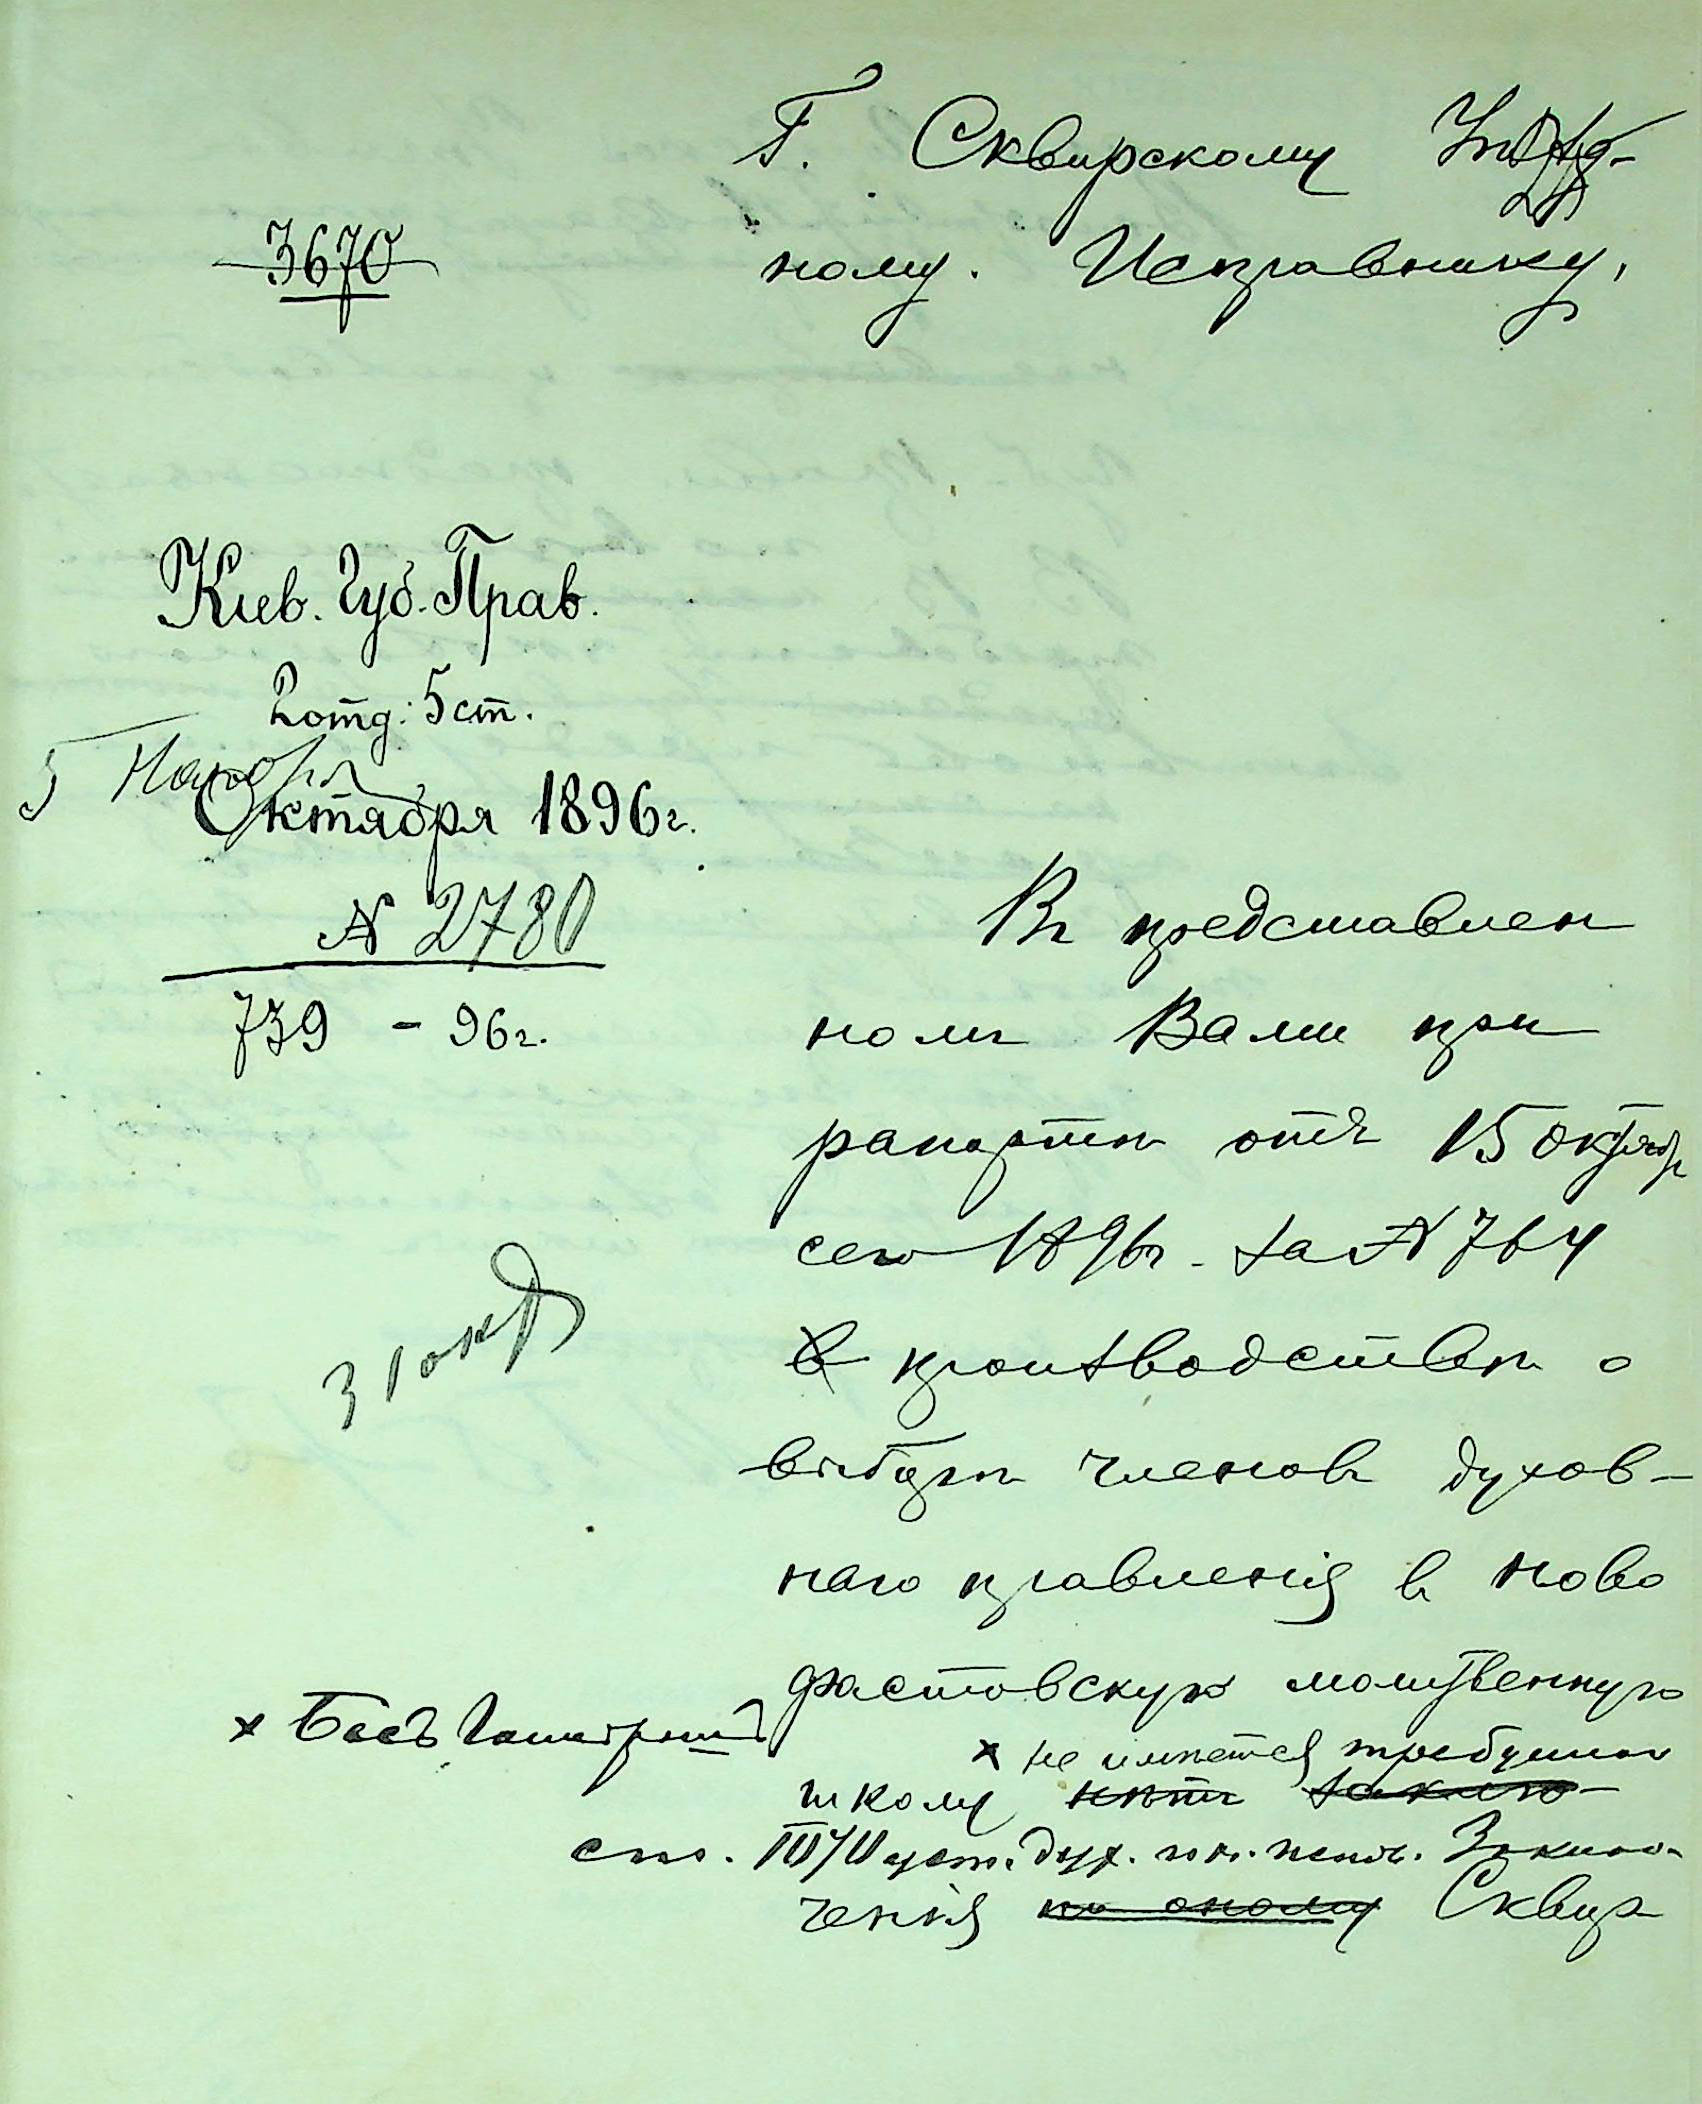 Г. Сквирскому Уѣзд-
ному. Исправнику,
3670
Кіев. Губ. Прав.
2 отд: 5 ст.
5 Ноября
Октября 1896 г.
№ 2780
739 - 96 г.
Въ представлен
номъ Вами при
рапортѣ отъ 15 октябр
сего 1896 г. за № 764
в производствѣ о
выборѣ членовъ духов-
наго правленія в ново
фастовскую молитвенную
х не имѣется требуемаго
школу нѣтъ заклю-
ст. уст. дух. ин. испов. Заклю-
ченія по оному Сквир
31 окт
х Басъ